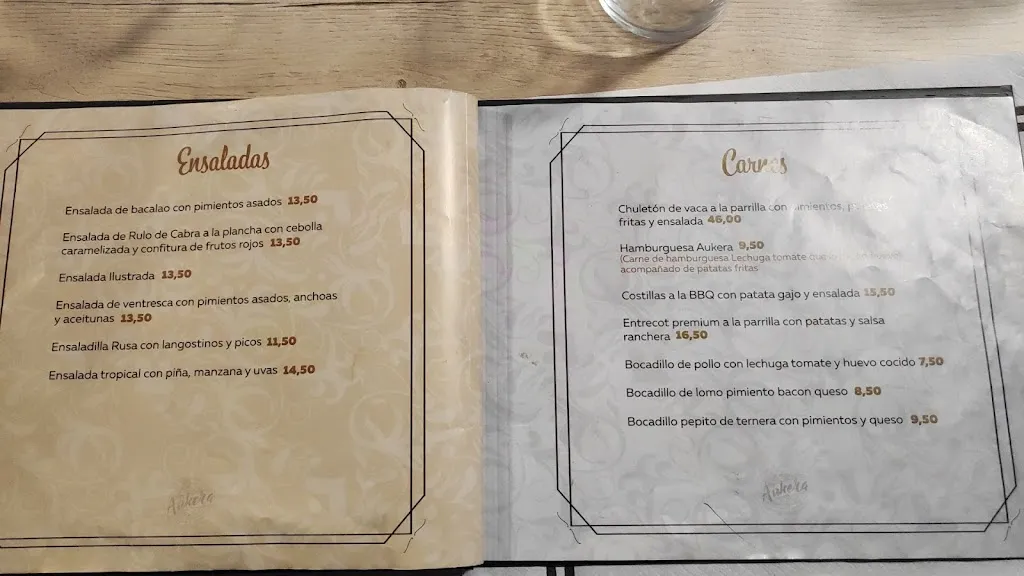 Ensaladas
Ensalada de bacalao con pimientos asados 13,50
Ensalada de Rulo de Cabra a la plancha con cebolla
caramelizada y confitura de frutos rojos 13,50
Ensalada Ilustrada 13,50
Ensalada de ventresca con pimientos asados, anchoas
y aceitunas 13,50
Ensaladilla Rusa con langostinos y picos 11,50
Ensalada tropical con piña, manzana y uvas 14,50
Aukera
Carnes
Chuletón de vaca a la parrilla con pimientos,
fritas y ensalada 46,00
Hamburguesa Aukera 9,50
(Carne de hamburguesa Lechuga tomate
acompañado de patatas fritas
Costillas a la BBQ con patata gajo y ensalada 15,50
Entrecot premium a la parrilla con patatas y salsa
ranchera 16,50
Bocadillo de pollo con lechuga tomate y huevo cocido 7,50
Bocadillo de lomo pimiento bacon queso 8,50
Bocadillo pepito de ternera con pimientos y queso 9,50
Aukera